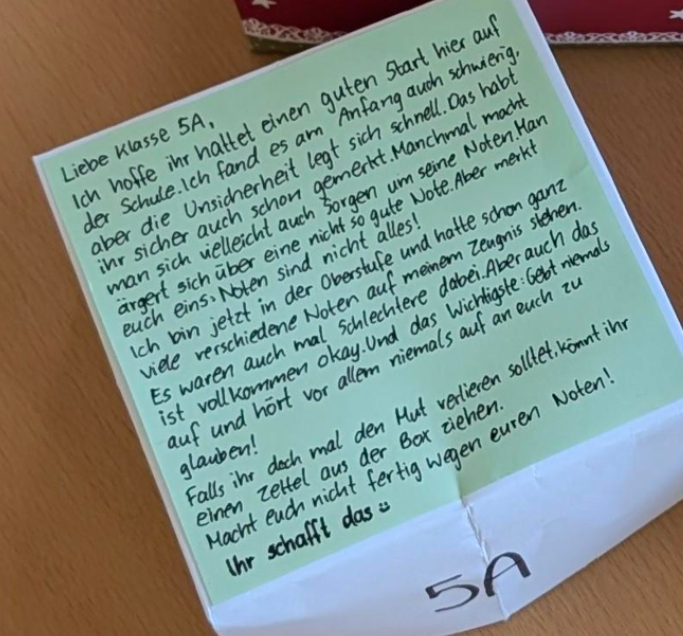 Liebe Klasse 5A,
Ich hoffe ihr hattet einen guten Start hier auf
der Schule. Ich fand es am Anfang auch schwierig,
aber die Unsicherheit legt sich schnell. Das habt
ihr sicher auch schon gemerkt. Manchmal macht
man sich vielleicht auch Sorgen um seine Noten. Man
ärgert sich über eine nicht so gute Note. Aber merkt
euch eins: Noten sind nicht alles!
Ich bin jetzt in der Oberstufe und hatte schon ganz
viele verschiedene Noten auf meinem Zeugnis stehen.
Es waren auch mal Schlechtere dabei. Aber auch das
ist vollkommen okay. Und das Wichtigste: Gebt niemals
auf und hört vor allem niemals auf an euch zu
glauben!
Falls ihr doch mal den Mut verlieren solltet, könnt ihr
einen Zettel aus der Box ziehen.
Macht euch nicht fertig wegen euren Noten!
Ihr schafft das :)
5A